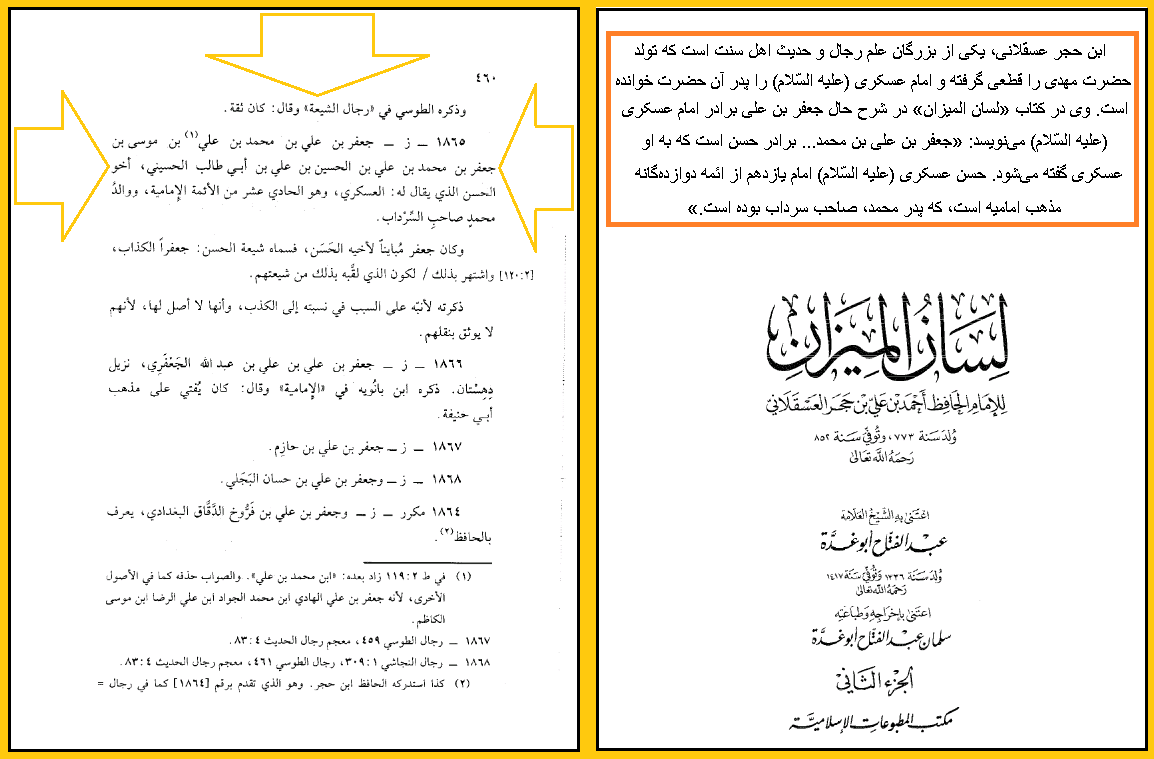 ٤٦٠
وذكره الطوسي في «رجال الشيعة» وقال: كان ثقة.
١٨٦٥ ــ ز ــ جعفر بن علي بن محمد بن علي(١) بن موسى بن
جعفر بن محمد بن علي بن الحسين بن علي بن أبي طالب الحسيني، أخو
الحسن الذي يقال له: العسكري، وهو الحادي عشر من الأئمة الإمامية، ووالدُ
محمدٍ صاحبِ السِّرْداب.
وكان جعفر مُبايناً لأخيه الحَسَن، فسماه شيعة الحسن: جعفراً الكذاب،
[١٢٠:٢] واشتهر بذلك / لكون الذي لقَّبه بذلك من شيعتهم.
ذكرته لأنبّه على السبب في نسبته إلى الكذب، وأنها لا أصل لها، لأنهم
لا يوثق بنقلهم.
١٨٦٦ ــ ز ــ جعفر بن علي بن علي بن عبد الله الجَعْفَري، نزيل
دِهِسْتان. ذكره ابن بانُويه في «الإمامية» وقال: كان يُفتي على مذهب
أبي حنيفة.
١٨٦٧ ــ ز ــ جعفر بن علي بن حازِم.
١٨٦٨ ــ ز ــ وجعفر بن علي بن حسان البَجَلي.
١٨٦٤ مكرر ــ ز ــ وجعفر بن علي بن فَرُّوخ الدَّقَّاق البغدادي، يعرف
بالحافظ(٢).
(١) في ط ١١٩:٢ زاد بعده: «ابن محمد بن علي». والصواب حذفه كما في الأصول
الأخرى، لأنه جعفر بن علي الهادي ابن محمد الجواد ابن علي الرضا ابن موسى
الكاظم.
١٨٦٧ ــ رجال الطوسي ٤٥٩، معجم رجال الحديث ٨٣:٤.
١٨٦٨ ــ رجال النجاشي ٣٠٩:١، رجال الطوسي ٤٦١، معجم رجال الحديث ٨٣:٤.
(٢) كذا استدركه الحافظ ابن حجر. وهو الذي تقدم برقم [١٨٦٤] كما في رجال =
ابن حجر عسقلانی، یکی از بزرگان علم رجال و حدیث اهل سنت است که تولد
حضرت مهدی را قطعی گرفته و امام عسکری (علیه السّلام) را پدر آن حضرت خوانده
است. وی در کتاب «لسان المیزان» در شرح حال جعفر بن علی برادر امام عسکری
(علیه السّلام) می‌نویسد: «جعفر بن علی بن محمد... برادر حسن است که به او
عسکری گفته می‌شود. حسن عسکری (علیه السّلام) امام یازدهم از ائمه دوازده‌گانه
مذهب امامیه است، که پدر محمد، صاحب سرداب بوده است.»
لِسَانُ المِيزَانِ
لِلإِمَامِ الحَافِظِ أَحْمَد بْن عَلِيّ بْن حَجَر العَسْقَلَانِيّ
وُلِدَ سَنَة ٧٧٣، وَتُوُفِّيَ سَنَة ٨٥٢
رَحِمَهُ اللَّه تَعَالىٰ
اعتَنىٰ بِهِ الشَّيْخ العَلَّامَة
عبد الفتاح أبو غدّة
وُلِدَ سَنَة ١٣٣٦ وَتُوُفِّيَ سَنَة ١٤١٧
رَحِمَهُ اللَّه تَعَالىٰ
اعتَنىٰ بإخراجِهِ وَطباعَتِه
سلمان عبد الفتاح أبو غدّة
الجُزء الثَّاني
مكتب المطبوعات الإسلاميَّة